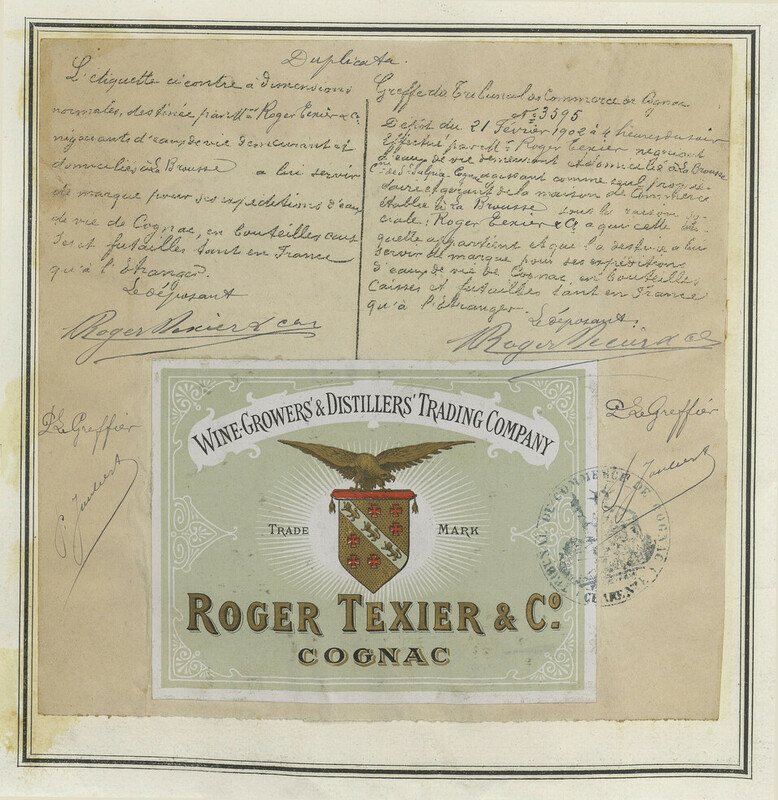 Duplicata.
L'étiquette ci contre à dimensions
normales, destinée par Mrs Roger Texier & Co
négociants d'eaux de vie demeurant et
domiciliés à La Brousse a lui servir
de marque pour ses expéditions d'eaux
de vie de Cognac, en bouteilles, cais
ses et futailles tant en France
qu'à l'étranger.
Le déposant
Roger Texier & Co
P. Le Greffier
P. Joubert
Greffe du Tribunal de Commerce de Cognac
No 3395
Dépôt du 21 Février 1902 à 4 heures du soir
Effectué par Mr Roger Texier négociant
d'eaux de vie demeurant & domicilié à La Brousse
agissant comme seul proprié-
taire et gérant de la maison de Commerce
établie à La Brousse sous la raison so-
ciale: Roger Texier & Co a qui cette éti-
quette appartient et qui la destine a lui
servir de marque pour ses expéditions
d'eaux de vie de Cognac, en bouteilles,
caisses et futailles tant en France
qu'à l'étranger.
Le déposant,
Roger Texier & Co
P. Le Greffier
Joubert
WINE-GROWERS' & DISTILLERS' TRADING COMPANY
TRADE MARK
ROGER TEXIER & Co.
COGNAC
TRIBUNAL DE COMMERCE DE COGNAC
(CHARENTE)